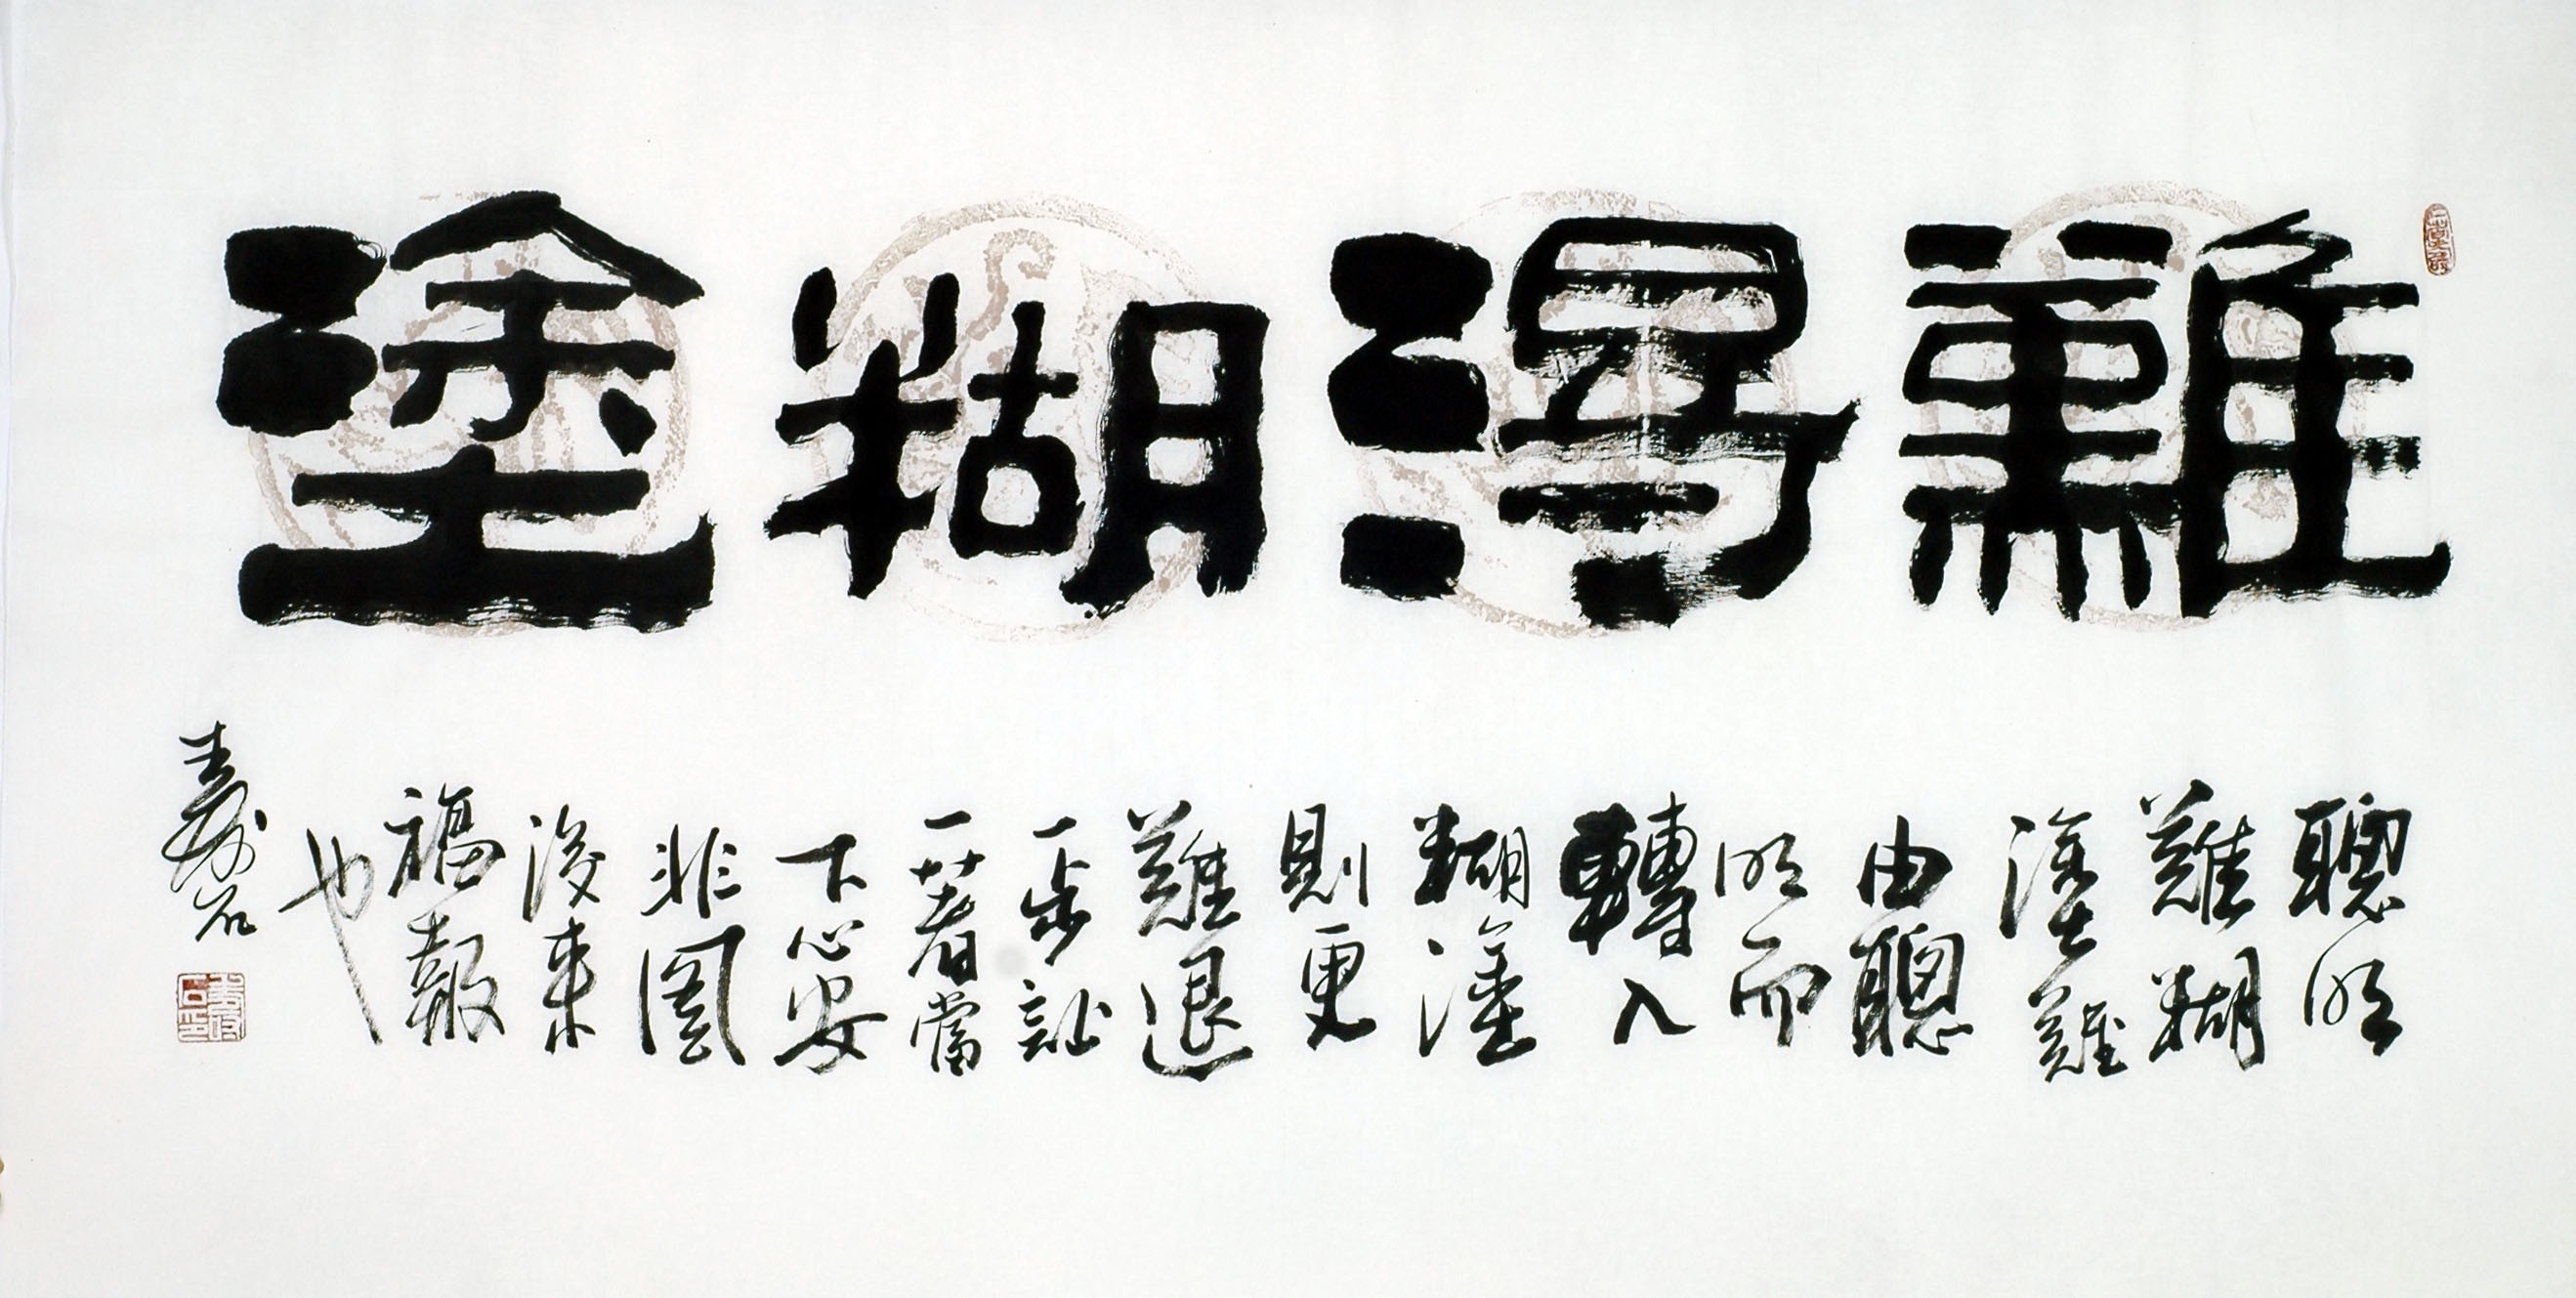 難得糊塗
聰明
難糊
塗難
由聰
明而
轉入
糊塗
則更
難退
一步
一著當
下心安
非圖
後來
福報
也
壽石